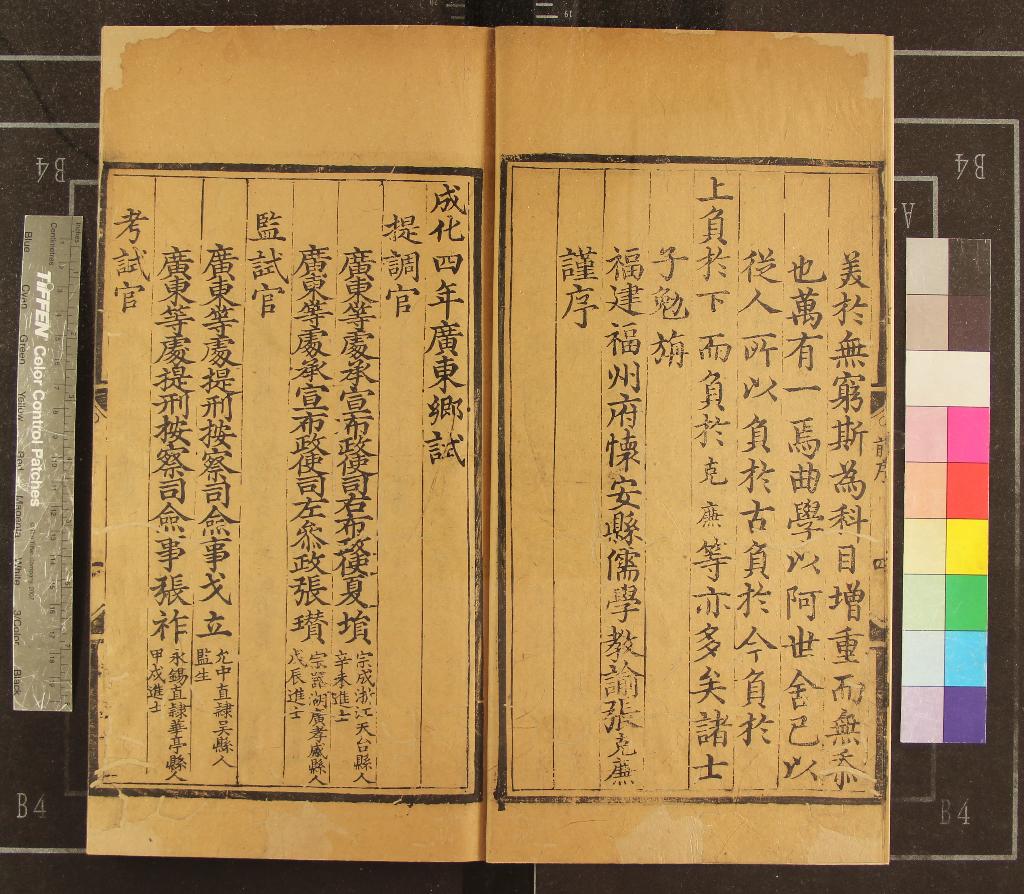 美於無窮斯為科目增重而無忝
也萬有一焉曲學以阿世舍己以
從人所以負於古負於今負於
上負於下而負於克廡等亦多矣諸士
子勉旃
福建福州府懐安縣儒學教諭張克廡
謹序
前序
成化四年廣東鄉試
提調官
廣東等處承宣布政使司右布政使夏塤 宗成浙江天台縣人
辛未進士
廣東等處承宣布政使司左叅政張瓚 宗器湖廣孝感縣人
戊辰進士
監試官
廣東等處提刑按察司僉事戈立 允中直隷吳縣人
監生
廣東等處提刑按察司僉事張祚 永錫直隷華亭縣人
甲戌進士
考試官
B4
B4
B4
B4
TIFFEN Color Control Patches
Centimetres
Inches
Blue
Cyan
Green
Yellow
Red
Magenta
White
3/Color
Black
19